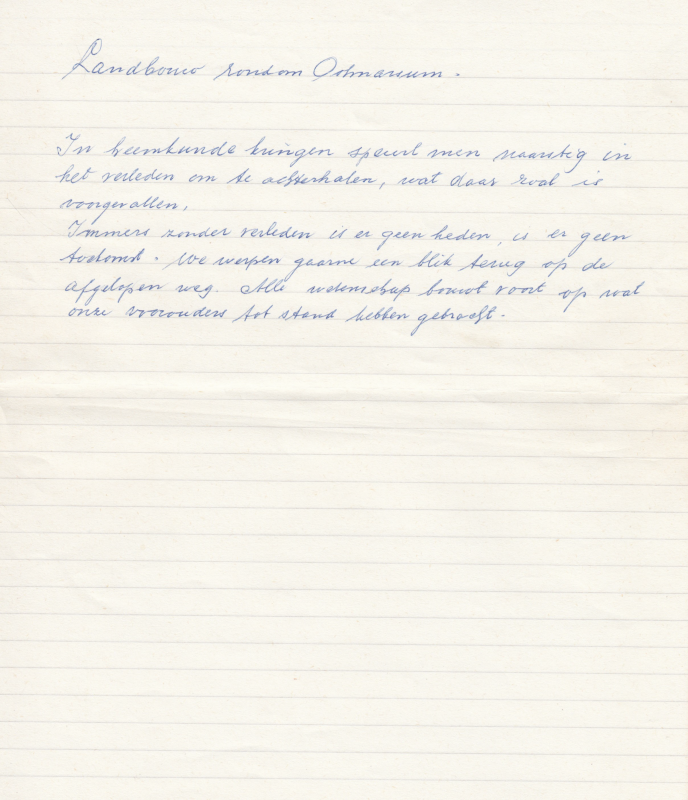 Landbouw rondom Ootmarsum.
In heemkunde kringen speurt men naarstig in
het verleden om te achterhalen, wat daar zoal is
voorgevallen.
Immers zonder verleden is er geen heden, is er geen
toekomst. We werpen gaarne een blik terug op de
afgelopen weg. Alle wetenschap bouwt voort op wat
onze voorouders tot stand hebben gebracht.